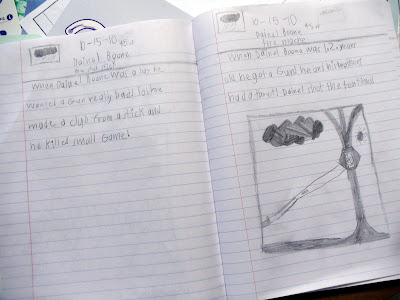 10-15-10
Dainel Boone
when Dainel Boone was a boy he
wanted a Gun really bad! So he
made a club from a stick and
he killed small Game!
10-15-10
Dainel Boone
fire
when Dainel Boone was 12 years
old he got a Gun! he and his brothers
had a Dainel shot the